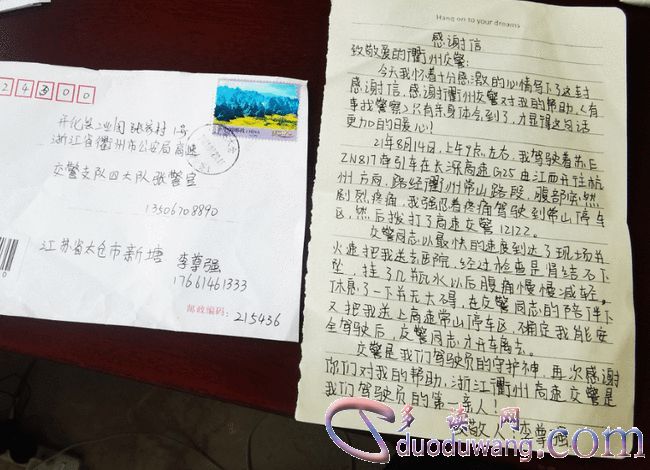 324300
开化县工业园张家村1号
浙江省衢州市公安局高速
交警支队四大队张警官
13506708890
江苏省太仓市新塘 李尊强
17661461333
邮政编码：215436
Hang on to your dreams
感谢信
致敬爱的衢州交警：
今天我怀着十分感激的心情写下了这封
感谢信，感谢衢州交警对我的帮助，《有
事找警察》只有亲身体会到了，才显得这句话
更加的暖心！
21年8月14日，上午9点左右，我驾驶着苏E
ZN817牵引车在长深高速G25由江西开往杭
州方向，路经衢州常山路段，腹部突然
剧烈疼痛，我强忍着疼痛驾驶到常山停车
区，然后拨打了高速交警12122。
交警同志以最快的速度到达了现场并
火速把我送去医院，经过检查是肾结石下
坠，挂了几瓶水以后腹痛慢慢减轻。
休息了一下并无大碍，在交警同志的陪伴下
又把我送上高速常山停车区，确定我能安
全驾驶后，交警同志才开车离去。
交警是我们驾驶员的守护神，再次感谢
你们对我的帮助，浙江衢州高速交警是
我们驾驶员的第一亲人！
致敬人：李尊强
多读网
duoduwang.com